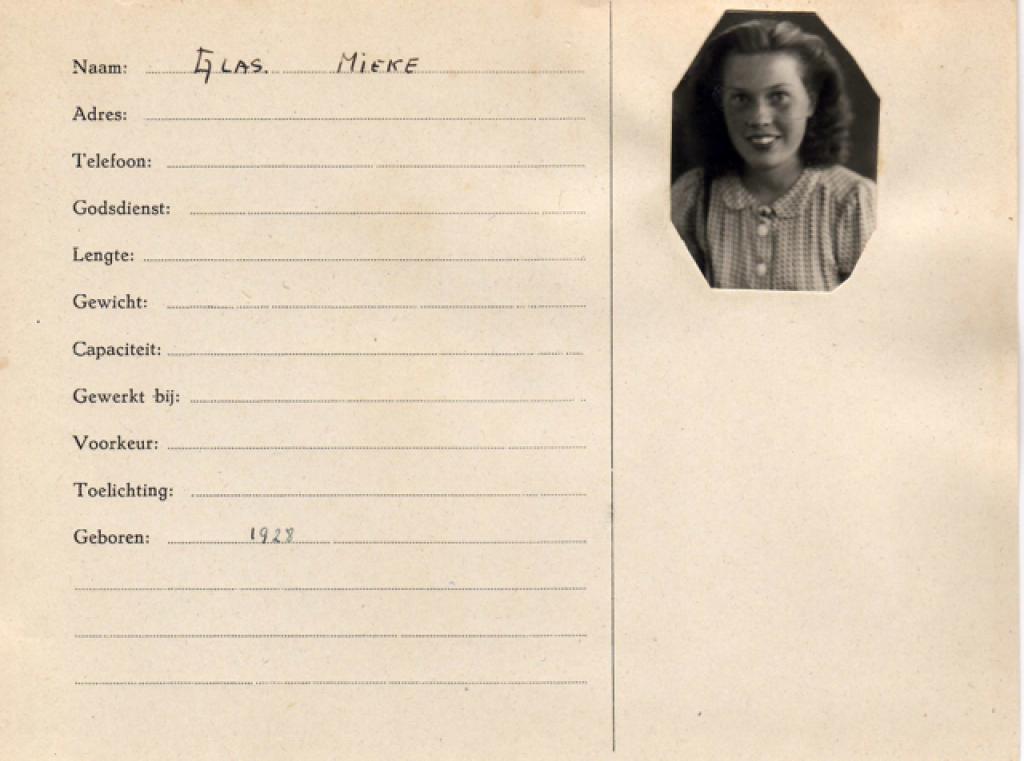 Naam: GLAS. MIEKE
Adres:
Telefoon:
Godsdienst:
Lengte:
Gewicht:
Capaciteit:
Gewerkt bij:
Voorkeur:
Toelichting:
Geboren: 1928